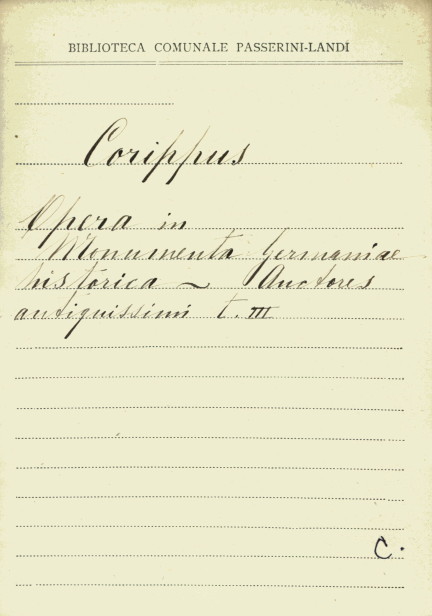 BIBLIOTECA COMUNALE PASSERINI-LANDI
Corippus
Opera in
Monumenta Germaniae
historica ~ Auctores
antiquissimi t. III
C.